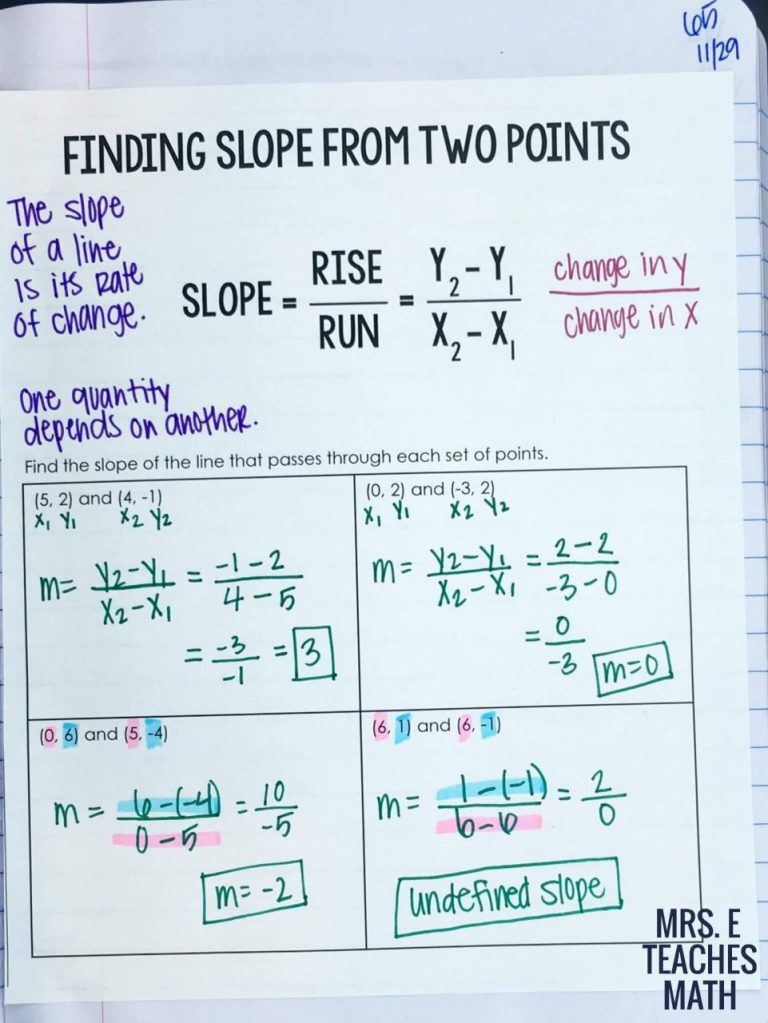 65
11/29
FINDING SLOPE FROM TWO POINTS
The slope
of a line
is its rate
of change.
SLOPE = RISE/RUN = Y₂-Y₁/X₂-X₁ change in y/change in x
One quantity
depends on another.
Find the slope of the line that passes through each set of points.
(5, 2) and (4, -1)
X₁ Y₁ X₂ Y₂
m= Y₂-Y₁/X₂-X₁ = -1-2/4-5
= -3/-1 = 3
(0, 2) and (-3, 2)
X₁ Y₁ X₂ Y₂
m= Y₂-Y₁/X₂-X₁ = 2-2/-3-0
= 0/-3 m=0
(0, 6) and (5, -4)
m = 6-(-4)/0-5 = 10/-5
m= -2
(6, 1) and (6, -1)
m= 1-(-1)/6-6 = 2/0
undefined slope
MRS. E
TEACHES
MATH